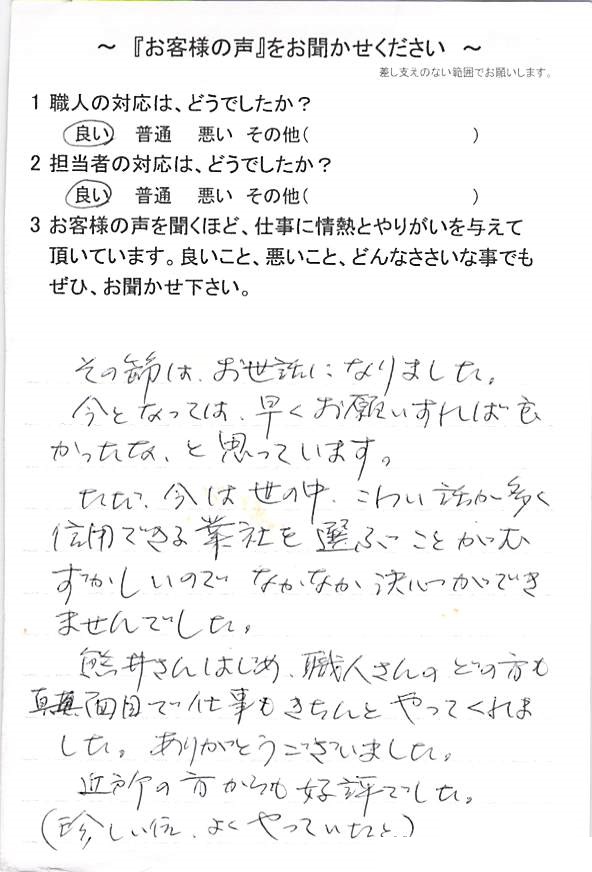 ～ 『お客様の声』をお聞かせください ～
差し支えのない範囲でお願いします。
1 職人の対応は、どうでしたか？
良い 普通 悪い その他( )
2 担当者の対応は、どうでしたか？
良い 普通 悪い その他( )
3 お客様の声を聞くほど、仕事に情熱とやりがいを与えて
頂いています。良いこと、悪いこと、どんなささいな事でも
ぜひ、お聞かせ下さい。
その節は、お世話になりました。
今となっては、早くお願いすれば良
かったな、と思っています。
ただ、今は世の中、こわい話が多く
信用できる業社を選ぶことがむ
ずかしいのでなかなか決心ができ
ませんでした。
熊井さんはじめ、職人さんのどの方も
真面目で仕事もきちんとやってくれま
した。ありがとうございました。
近所の方からも好評でした。
(珍しい位、よくやっていたと)